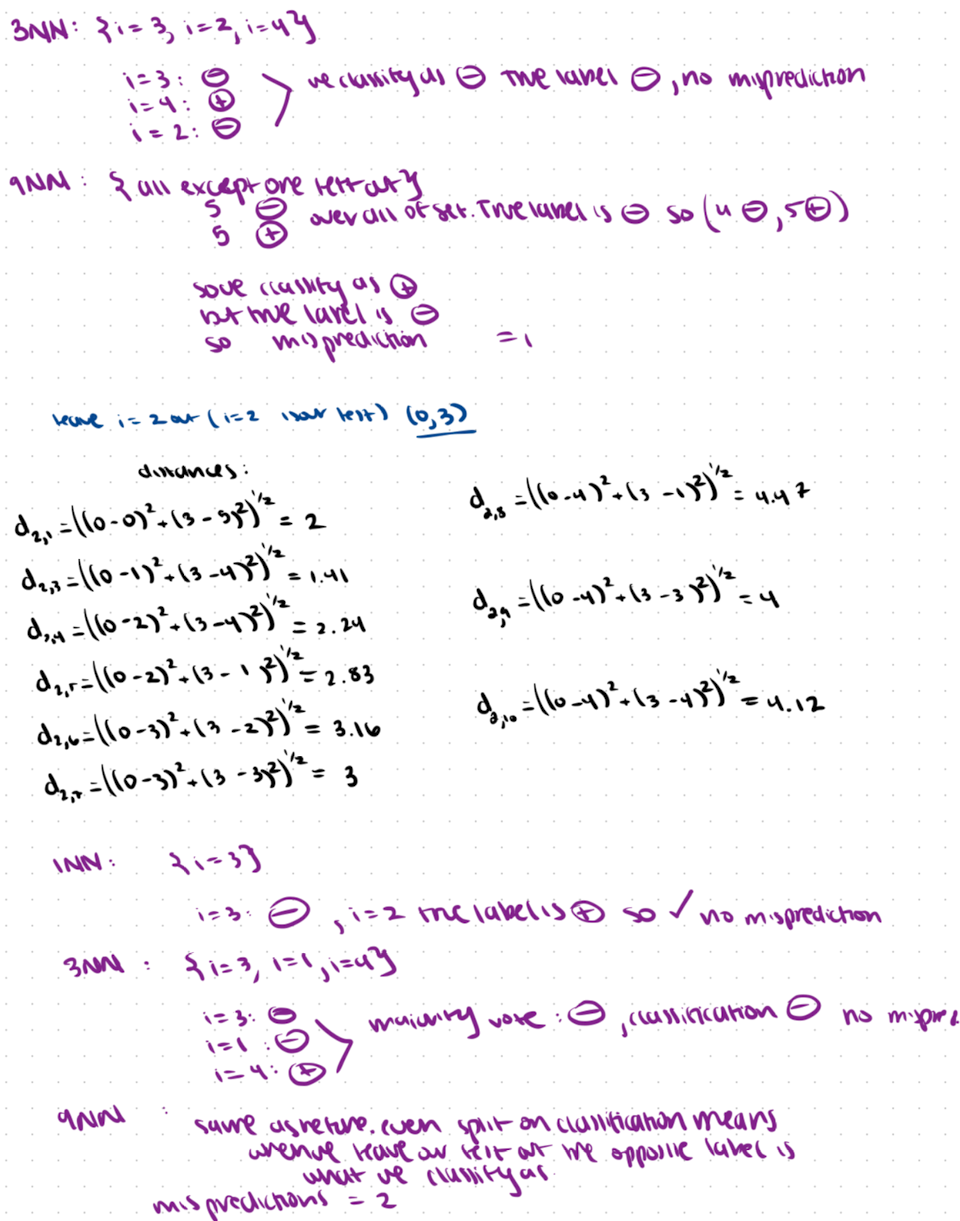 3NN: {i=3, i=2, i=4}
i=3: ⊖
i=4: ⊕ > we classify as ⊖ true label ⊖, no misprediction
i=2: ⊖
9NN: { all except one left out }
5 ⊖
5 ⊕ over all of set. True label is ⊖ so (4 ⊖, 5 ⊕)
so we classify as ⊕
but true label is ⊖
so misprediction = 1
leave i=2 out (i=2 is our test) (0,3)
distances:
d₂,₁ = ((0-0)² + (3-5)²)^1/2 = 2
d₂,₃ = ((0-1)² + (3-4)²)^1/2 = 1.41
d₂,₄ = ((0-2)² + (3-4)²)^1/2 = 2.24
d₂,₅ = ((0-2)² + (3-1)²)^1/2 = 2.83
d₂,₆ = ((0-3)² + (3-2)²)^1/2 = 3.16
d₂,₇ = ((0-3)² + (3-3)²)^1/2 = 3
d₂,₈ = ((0-4)² + (3-1)²)^1/2 = 4.47
d₂,₉ = ((0-4)² + (3-3)²)^1/2 = 4
d₂,₁₀ = ((0-4)² + (3-4)²)^1/2 = 4.12
1NN: {i=3}
i=3: ⊖, i=2 true label is ⊕ so ✓ no misprediction
3NN: {i=3, i=1, i=4}
i=3: ⊖
i=1: ⊖ > majority vote: ⊖, classification ⊖ no mispred
i=4: ⊕
9NN: same as before. even split on classification means
when we leave our test out the opposite label is
what we classify as
mispredictions = 2